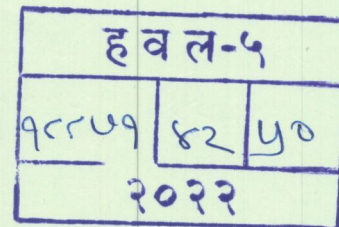 ह व ल-५
१८८७१ ४२ ५०
२०२२